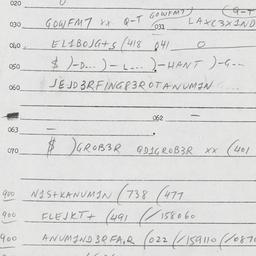 020
GOWFM7) (G-T
030 GOWFM7 xx Q-T 031 LAXC3X1ND
040 EL1BOJG+S (418 041 O
050 $ )-D...)-L...)-HANT )-G--
060 JEJD3RFING8P3ROTANUM1N ....
062 —
063 —
070 $ )GROB3R QD1GROB3R xx (401
900 N1S+KANUM1N (738 (477
900 FLEJKT+ (491 (/158060
900 ANUM1ND3RFA,R (022 (/159110 (/0870